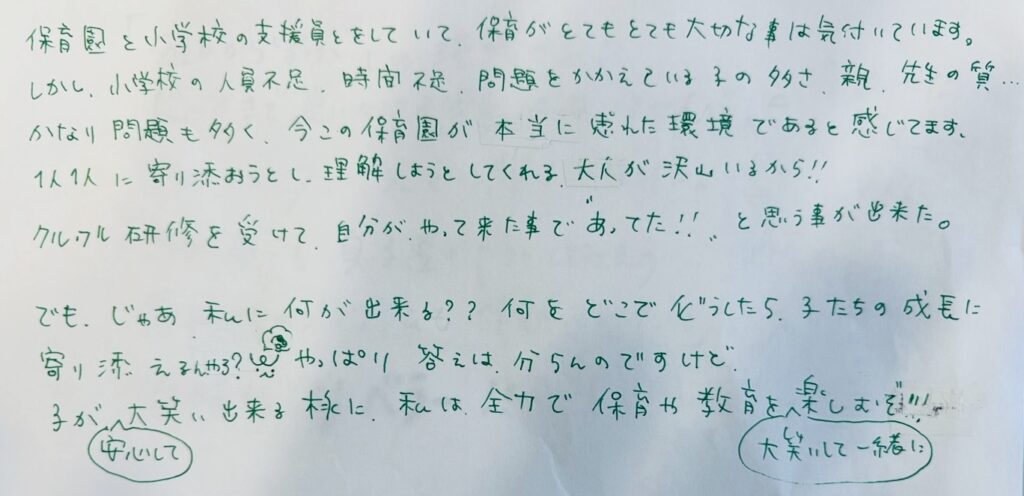 保育園と小学校の支援員とをしていて、保育がとてもとても大切な事は気付いています。
しかし、小学校の人員不足、時間不足、問題をかかえている子の多さ、親、先生の質…
かなり問題も多く、今この保育園が本当に恵れた環境であると感じてます、
1人1人に寄り添おうとし、理解しようとしてくれる、大人が沢山いるから!!
クルクル研修を受けて、自分が、やって来た事で"あってた!!"と思う事が出来た。
でも、じゃあ私に何が出来る??何をどこでどうしたら、子たちの成長に
寄り添えるんやろ?やっぱり答えは、分らんのですけど、
子が安心して大笑い出来る様に、私は、全力で保育や教育を大笑いして一緒に楽しむぞ!!!